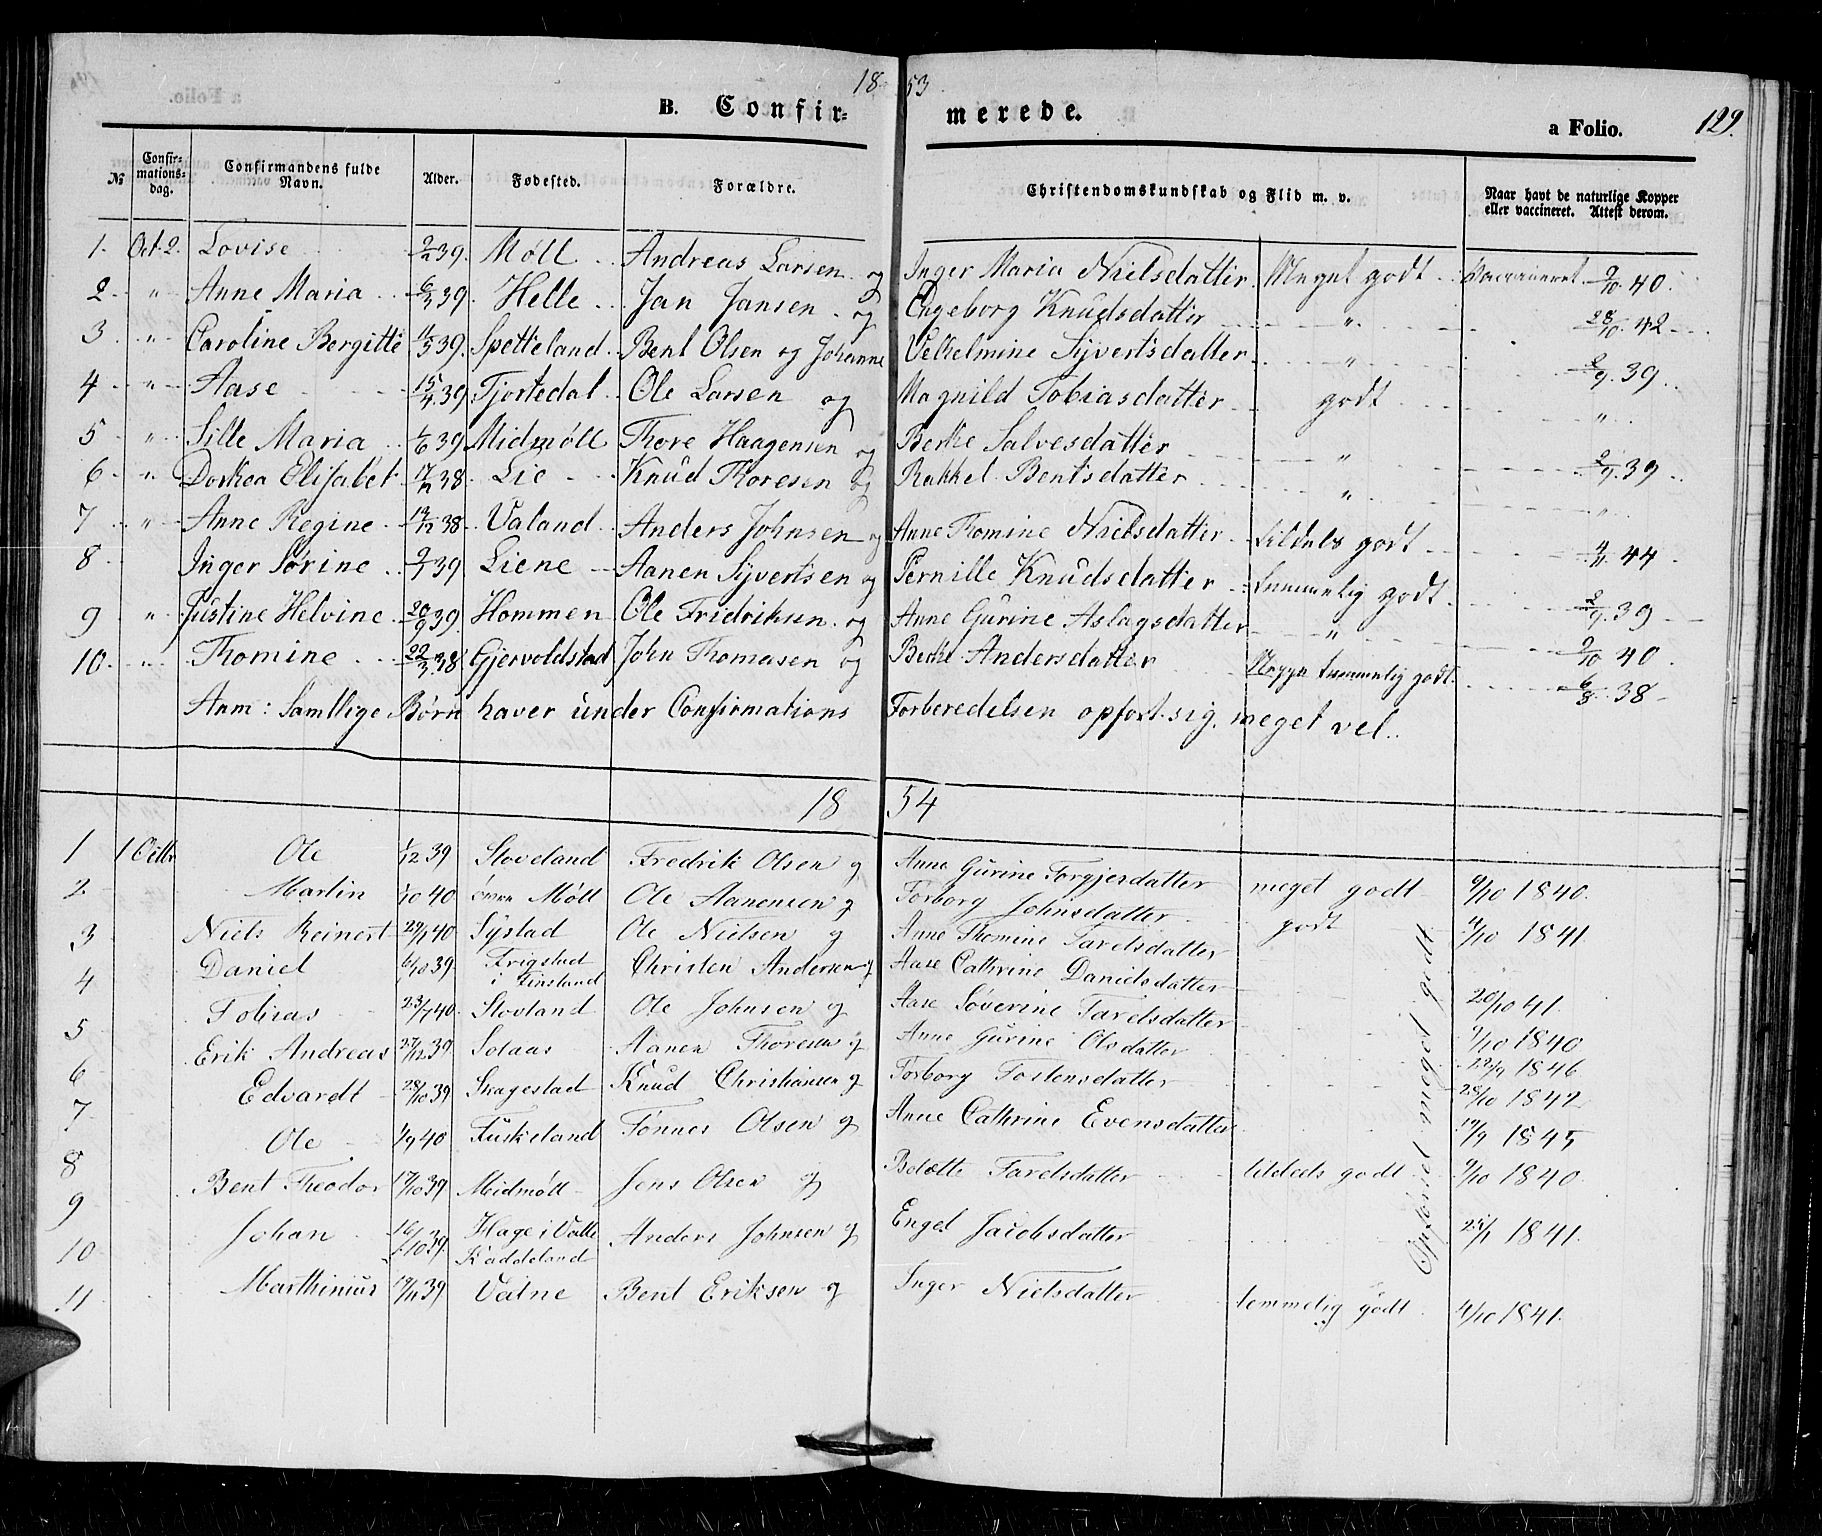 1853
B. Confir- merede.
a Folio. 129.
№ Confir-mations-dag. Confirmandens fulde Navn. Alder. Fødested. Forældre. Christendomskundskab og Flid m. v. Naar havt de naturlige Kopper eller vaccineret. Attest derom.
1. Oct. 2. Lovise 2/2 39. Møll Andreas Larsen og Inger Maria Nielsdatter Meget godt Vaccineret 9/10 40.
2 " Anne Maria 6/3 39. Helle Jan Jansen og Engeborg Knudsdatter " 28/10 42
3 " Caroline Bergitte 11/3 39. Spetteland Bent Olsen og Johanne Velhelmine Syvertsdatter " 2/9 39
4 " Aase 15/4 39 Fjortedal Ole Larsen og Magnild Tobiasdatter godt "
5 " Sille Maria 1/6 39 Midmøll Thore Haagensen og Berthe Salvesdatter " 2/9 39
6 " Dorthea Elisabet 17/11 38. Lie Knud Thoresen og Rakkel Bentsdatter " "
7 " Anne Regine 14/12 38 Valand Anders Johnsen og Anne Thomine Nielsdatter Tildels godt 4/11 44
8 Inger Sørine 2/7 39 Liene Aanen Syvertsen og Pernille Knudsdatter temmelig godt 2/9 39
9 " Justine Helvine 20/9 39. Hommen Ole Fridriksen og Anne Gurine Aslagsdatter " 9/10 40
10. " Thomine 22/3 38 Gjervoldstad John Thomasen og Berthe Andersdatter Neppe temmelig godt 6/8 38
Anm: Samtlige Børn haver under Confirmations Forberedelsen opført sig meget vel.
1854
1 1 Octbr Ole 1/12 39 Stoveland Fredrik Olsen og Anne Gurine Torgjersdatter meget godt 9/10 1840.
2 Martin 1/10 40 Møll Ole Aanensen og Torborg Johnsdatter godt 4/10 1841.
3 Niels Reinert 29/1 40 Systad Ole Nielsen og Anne Thomine Tarelsdatter
4 Daniel 6/10 39 Frigstad i Finsland Christen Andersen og Aase Cathrine Danielsdatter 20/10 41.
5 Tobias 23/7 40 Stovland Ole Johnsen og Aase Søverine Tarelsdatter 9/10 1840
6 Erik Andreas 27/12 39 Solaas Aanen Thoresen og Anne Gurine Olsdatter 22/9 1846
7 Edvardt 28/10 39 Skagestad Knud Christiansen og Torborg Tostensdatter 28/10 1842
8 Ole 1/9 40 Fuskeland Tønnes Olsen og Anne Cathrine Evensdatter 19/9 1845
9 Bent Theodor 17/10 39 Midmøll Jens Olsen og Bolette Tarelsdatter tildeels godt 9/10 1840
10 Johan 16/10 39 Hage i Valle Kaddeland Anders Johnsen og Engel Jacobsdatter 25/1 1841.
11 Marthinius 19/11 39 Vatne Bent Eriksen og Inger Nielsdatter temmelig godt 4/10 1841.
Opførsel meget godt